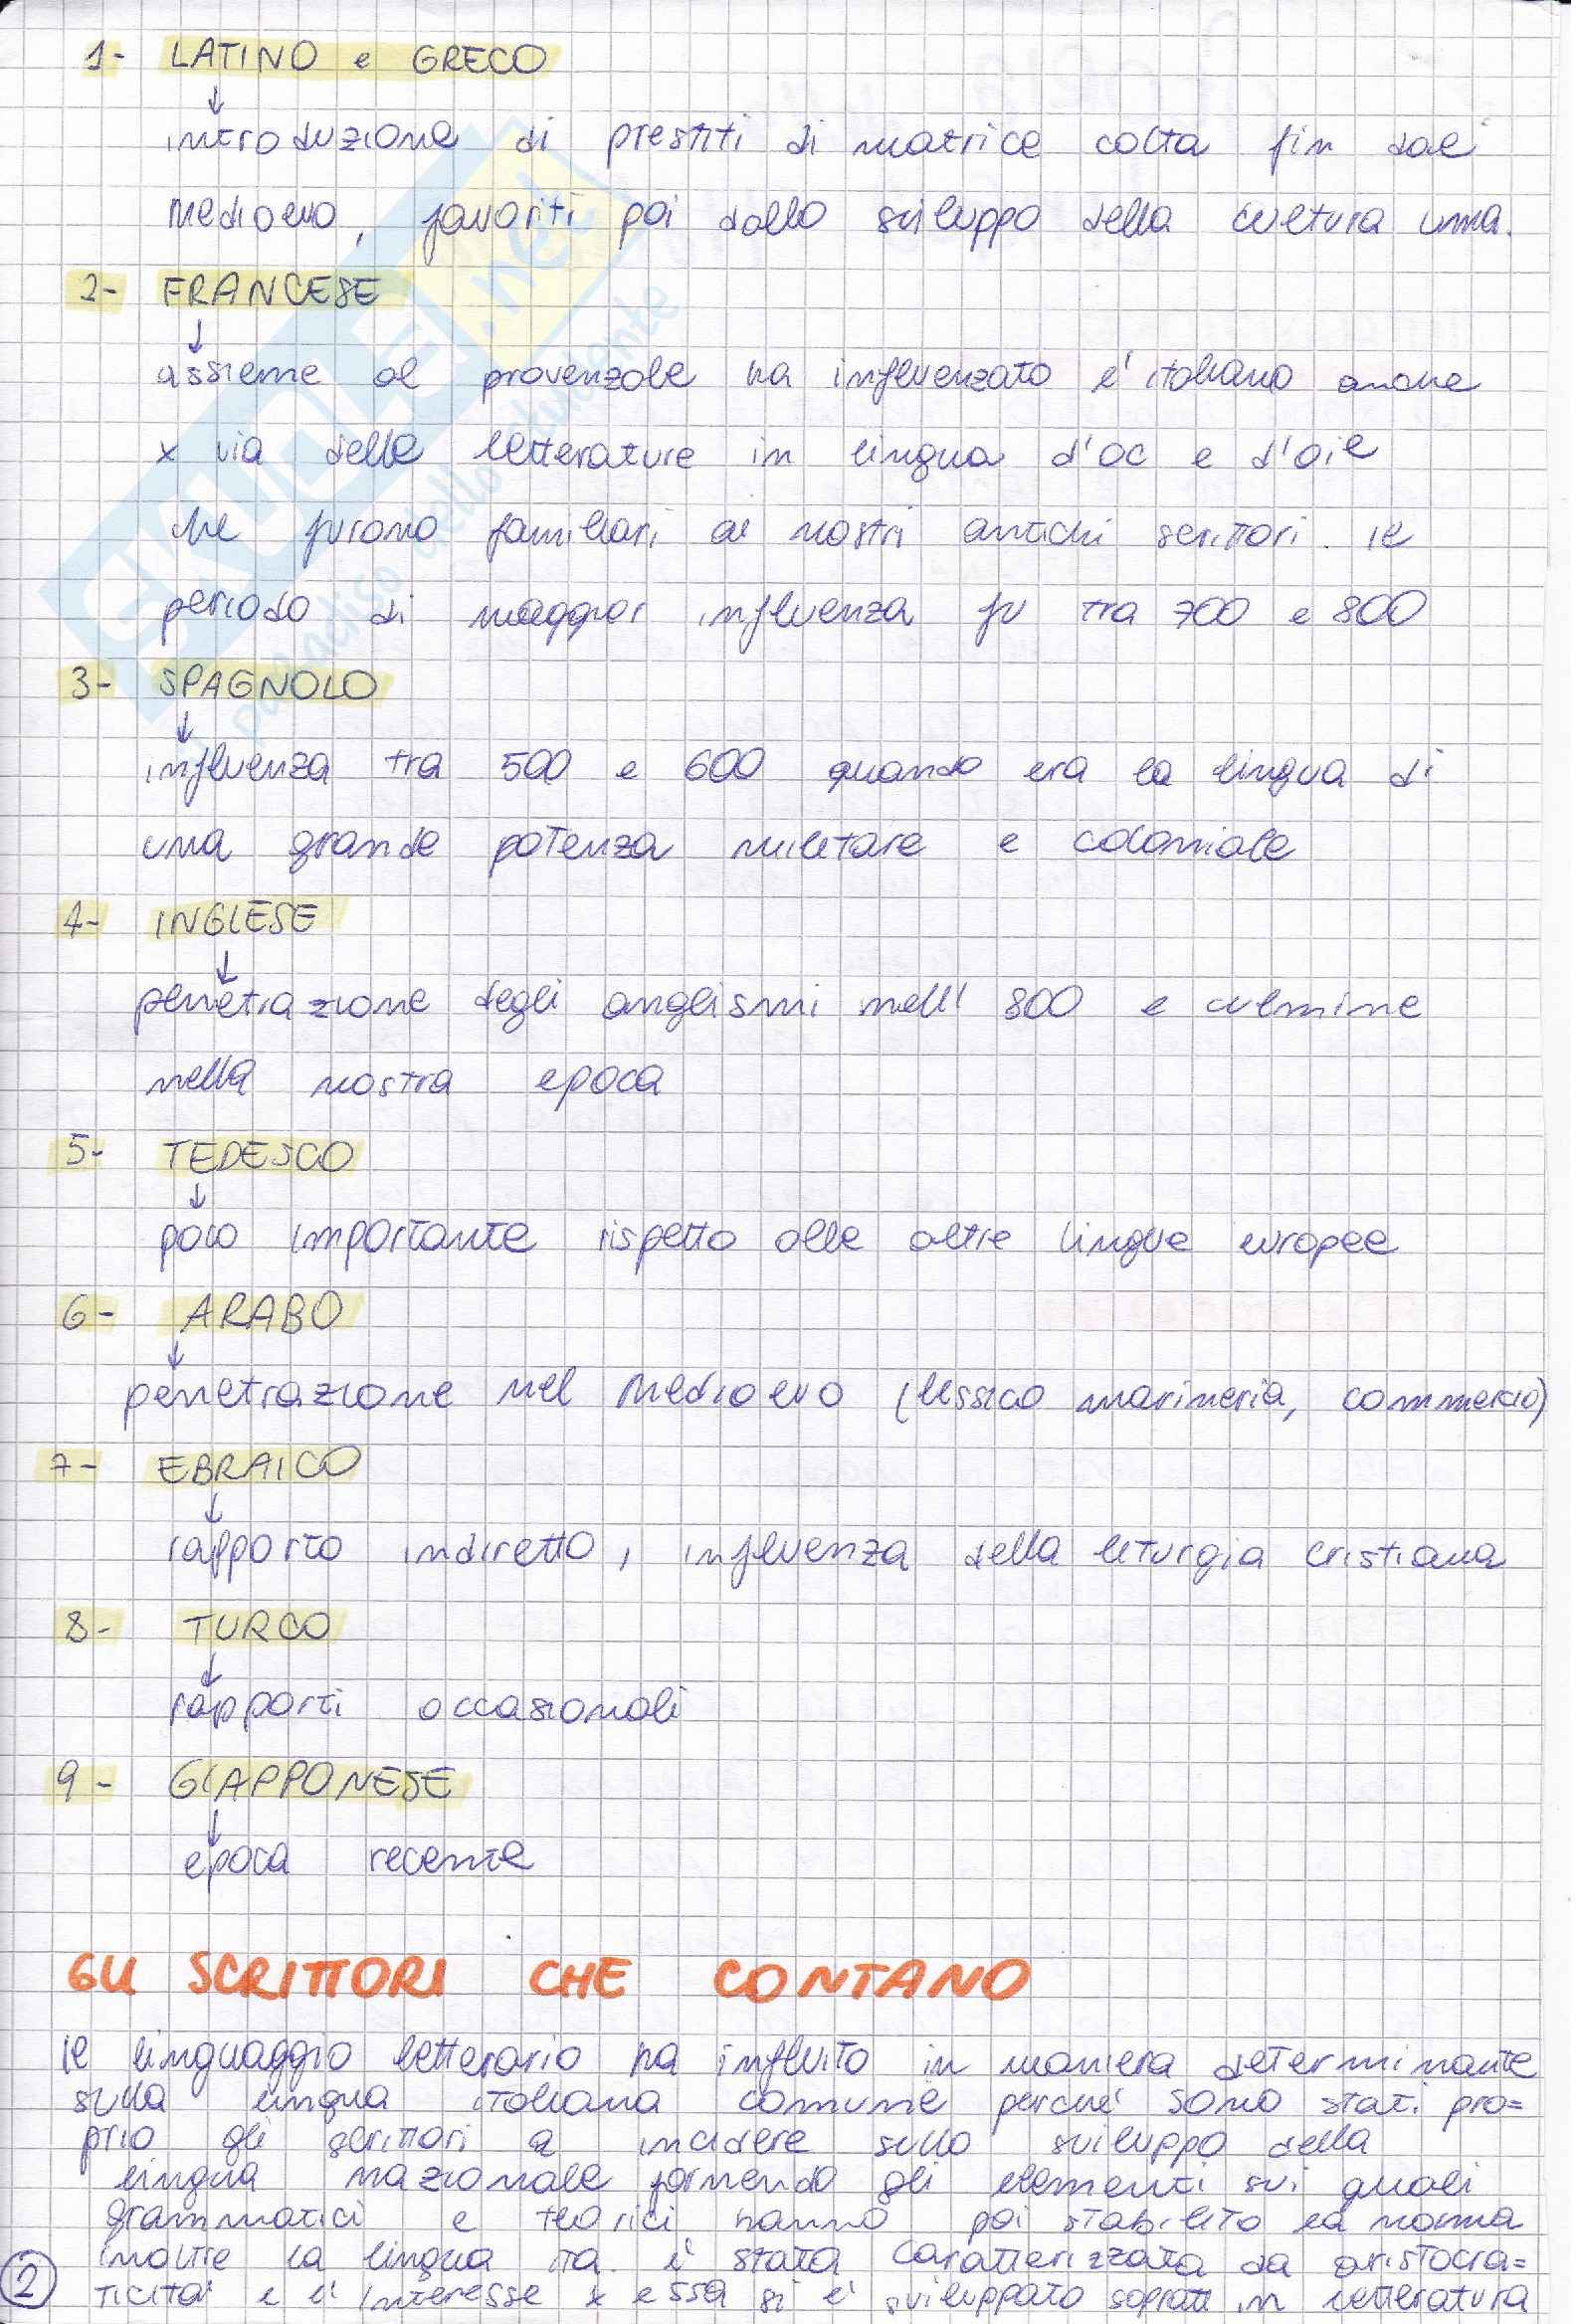 1- LATINO e GRECO
↓
introduzione di prestiti di matrice colta fin dal
Medioevo, favoriti poi dallo sviluppo della cultura uma.
2- FRANCESE
↓
assieme al provenzale ha influenzato l'italiano anche
x via delle letterature in lingua d'oc e d'oil
che furono familiari ai nostri antichi scrittori. Il
periodo di maggior influenza fu tra 700 e 800
3- SPAGNOLO
↓
influenza tra 500 e 600 quando era la lingua di
una grande potenza militare e coloniale
4- INGLESE
↓
penetrazione degli anglismi nell'800 e culmine
nella nostra epoca
5- TEDESCO
↓
poco importante rispetto alle altre lingue europee
6- ARABO
↓
penetrazione nel Medioevo (lessico marineria, commercio)
7- EBRAICO
↓
rapporto indiretto, influenza della liturgia cristiana
8- TURCO
↓
rapporti occasionali
9- GIAPPONESE
↓
epoca recente
GLI SCRITTORI CHE CONTANO
Il linguaggio letterario ha influito in maniera determinante
sulla lingua italiana comune perché sono stati pro=
prio gli scrittori a incidere sullo sviluppo della
lingua nazionale fornendo gli elementi sui quali
grammatici e teorici hanno poi stabilito la norma
inoltre la lingua ita. è stata caratterizzata da aristocra=
ticità e l'interesse x essa si è sviluppato sopratt in letteratura
2
SKUOLA.net
paradiso dello studente